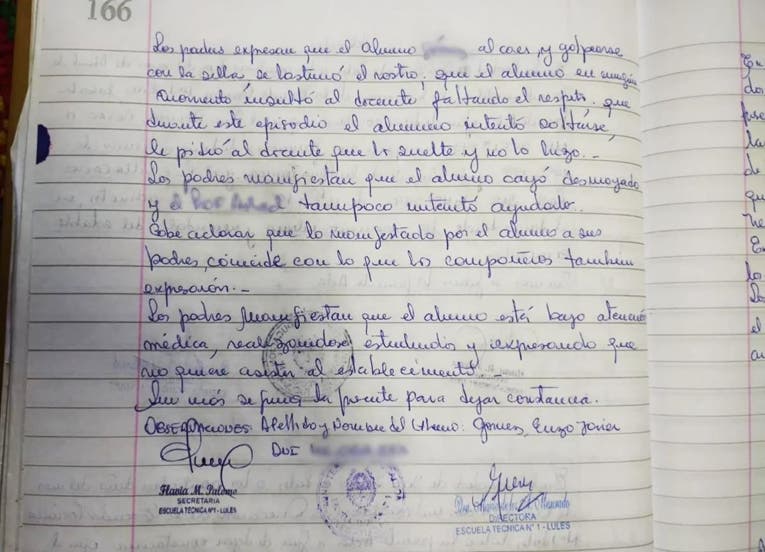 166
Los padres expresan que el alumno al caer y golpearse
con la silla se lastimó el rostro; que el alumno en ningún
momento insultó al docente faltando el respeto. que
durante este episodio el alumno intentó soltarse,
le pidió al docente que lo suelte y no lo hizo.-
Los padres manifiestan que el alumno cayó desmayado
y el tampoco intentó ayudarlo.
Cabe aclarar que lo manifestado por el alumno a sus
padres, coincide con lo que los compañeros también
expresaron.-
Los padres manifiestan que el alumno está bajo atención
médica, realizándose estudios y expresando que
no quiere asistir al establecimiento.-
Sin más se firma la presente para dejar constancia.
OBSERVACIONES: Apellido y Nombre del Alumno: Gomez, Enzo Javier
DNI
Flavia M. Palomo
SECRETARIA
ESCUELA TECNICA Nº1 - LULES
DIRECTORA
ESCUELA TECNICA Nº 1 - LULES